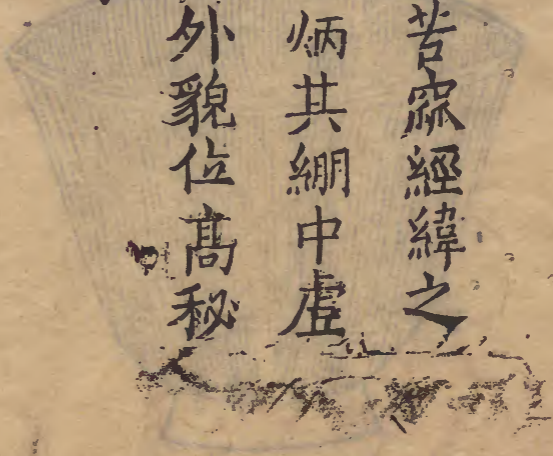 苦寐經緯之
炳其綳中虛
外貌位高秘